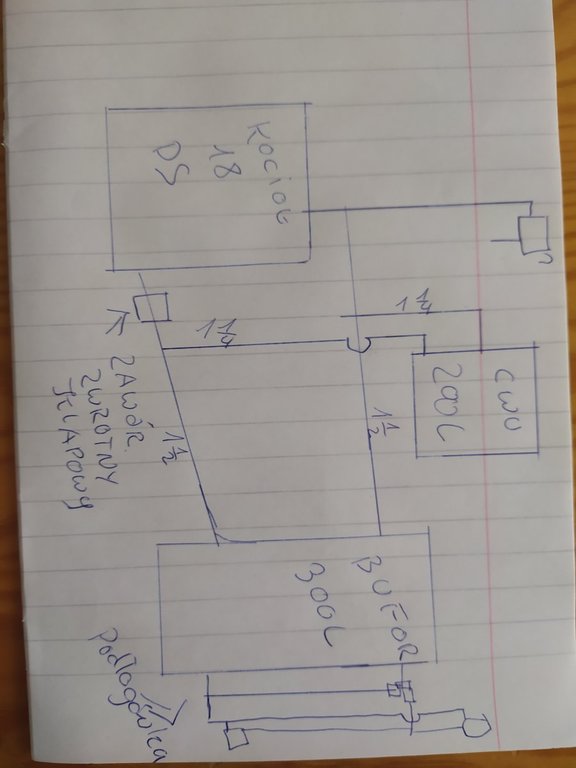 KOCIOŁ
18
DS
1 1/4
CWU
200L
1 1/4
ZAWÓR
ZWROTNY
KLAPOWY
1 1/2
1 1/2
BUFOR
300L
Podłogówka